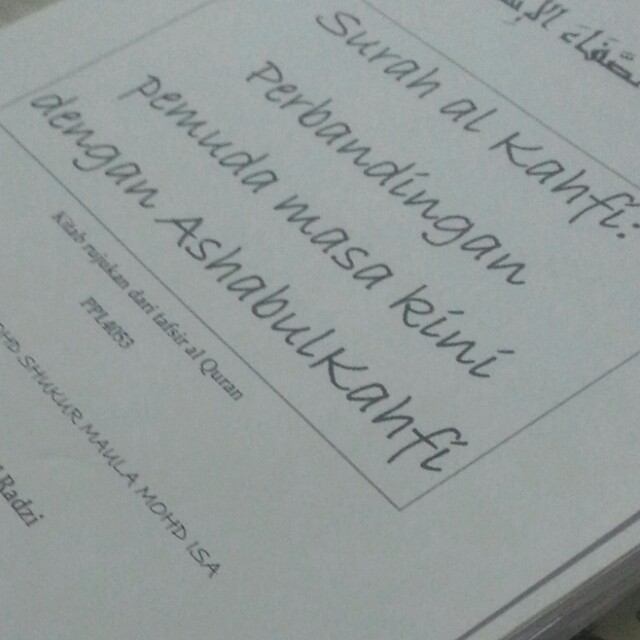 Surah al Kahfi:
Perbandingan
pemuda masa kini
dengan AshabulKahfi
Kitab rujukan dari tafsir al Quran
SHUKUR MAULA MOHD ISA
Radzi